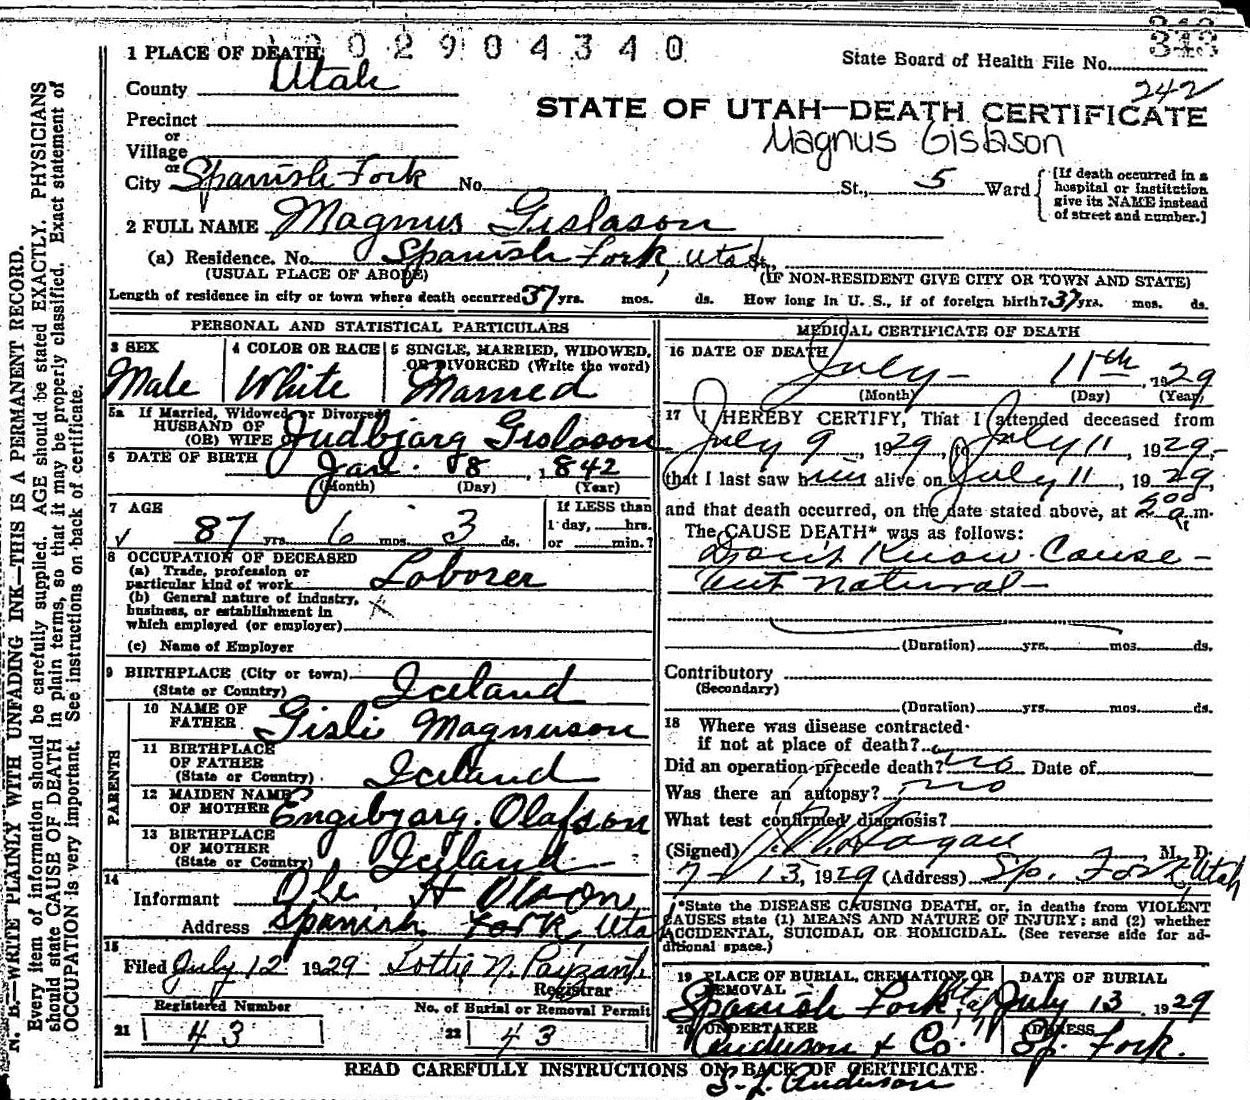 2 0 2 9 0 4 3 4 0
313
State Board of Health File No.
242
1 PLACE OF DEATH
County Utah
STATE OF UTAH—DEATH CERTIFICATE
Precinct
or
Village
Magnus Gislason
or
City Spanish Fork No. St., 5 Ward
[If death occurred in a hospital or institution give its NAME instead of street and number.]
2 FULL NAME Magnus Gislason
(a) Residence. No. Spanish Fork, Utah
(USUAL PLACE OF ABODE) (IF NON-RESIDENT GIVE CITY OR TOWN AND STATE)
Length of residence in city or town where death occurred 37 yrs. mos. ds. How long in U. S., if of foreign birth? 37 yrs. mos. ds.
PERSONAL AND STATISTICAL PARTICULARS
3 SEX
Male
4 COLOR OR RACE
White
5 SINGLE, MARRIED, WIDOWED, OR DIVORCED (Write the word)
Married
5a If Married, Widowed, or Divorced
HUSBAND OF
(OR) WIFE Judbjarg Gislason
6 DATE OF BIRTH Jan. 8, 1842
(Month) (Day) (Year)
7 AGE
87 yrs. 6 mos. 3 ds.
If LESS than
1 day, hrs.
or min.?
8 OCCUPATION OF DECEASED
(a) Trade, profession or
particular kind of work Laborer
(b) General nature of industry,
business, or establishment in
which employed (or employer)
(c) Name of Employer
9 BIRTHPLACE (City or town)
(State or Country) Iceland
PARENTS
10 NAME OF
FATHER Gisli Magnuson
11 BIRTHPLACE
OF FATHER
(State or Country) Iceland
12 MAIDEN NAME
OF MOTHER Engibjarg. Olafson
13 BIRTHPLACE
OF MOTHER
(State or Country) Iceland
14
Informant Ole H Olson
Address Spanish Fork, Utah
15
Filed July 12 1929 Lottie N. Payzant
Registrar
Registered Number No. of Burial or Removal Permit
21 43 22 43
MEDICAL CERTIFICATE OF DEATH
16 DATE OF DEATH
July 11th, 1929
(Month) (Day) (Year)
17 I HEREBY CERTIFY, That I attended deceased from
July 9, 1929, to July 11, 1929,
that I last saw him alive on July 11, 1929,
and that death occurred, on the date stated above, at 2 00 a.m.
The CAUSE DEATH* was as follows:
Don't Know Cause —
but natural —
(Duration) yrs. mos. ds.
Contributory
(Secondary)
(Duration) yrs. mos. ds.
18 Where was disease contracted
if not at place of death?
Did an operation precede death? no Date of
Was there an autopsy? no
What test confirmed diagnosis?
(Signed) Hagan M. D.
7-13, 1929 (Address) Sp. Fork, Utah
*State the DISEASE CAUSING DEATH, or, in deaths from VIOLENT
CAUSES state (1) MEANS AND NATURE OF INJURY; and (2) whether
ACCIDENTAL, SUICIDAL OR HOMICIDAL. (See reverse side for ad-
ditional space.)
19 PLACE OF BURIAL, CREMATION, OR REMOVAL
Spanish Fork, Utah
DATE OF BURIAL
July 13, 1929
20 UNDERTAKER
Anderson & Co.
ADDRESS
Sp. Fork.
READ CAREFULLY INSTRUCTIONS ON BACK OF CERTIFICATE
S. L. Anderson
N. B.—WRITE PLAINLY WITH UNFADING INK—THIS IS A PERMANENT RECORD.
Every item of information should be carefully supplied. AGE should be stated EXACTLY. PHYSICIANS
should state CAUSE OF DEATH in plain terms, so that it may be properly classified. Exact statement of
OCCUPATION is very important. See instructions on back of certificate.